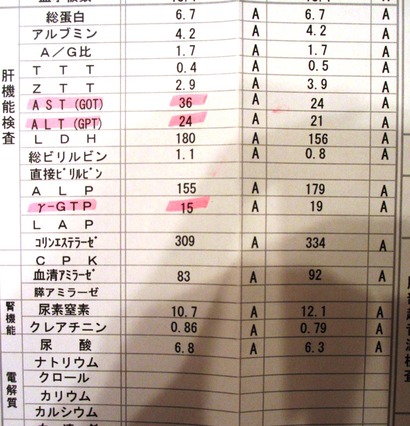 総蛋白 6.7 A 6.7 A
アルブミン 4.2 A 4.2 A
A/G比 1.7 A 1.7 A
TTT 0.4 A 0.5 A
ZTT 2.9 A 3.9 A
AST(GOT) 36 A 24 A
ALT(GPT) 24 A 21 A
LDH 180 A 156 A
総ビリルビン 1.1 A 0.8 A
直接ビリルビン
ALP 155 A 179 A
γ-GTP 15 A 19 A
LAP
コリンエステラーゼ 309 A 334 A
CPK
血清アミラーゼ 83 A 92 A
膵アミラーゼ
尿素窒素 10.7 A 12.1 A
クレアチニン 0.86 A 0.79 A
尿酸 6.8 A 6.3 A
ナトリウム
クロール
カリウム
カルシウム
肝機能検査
腎機能
電解質